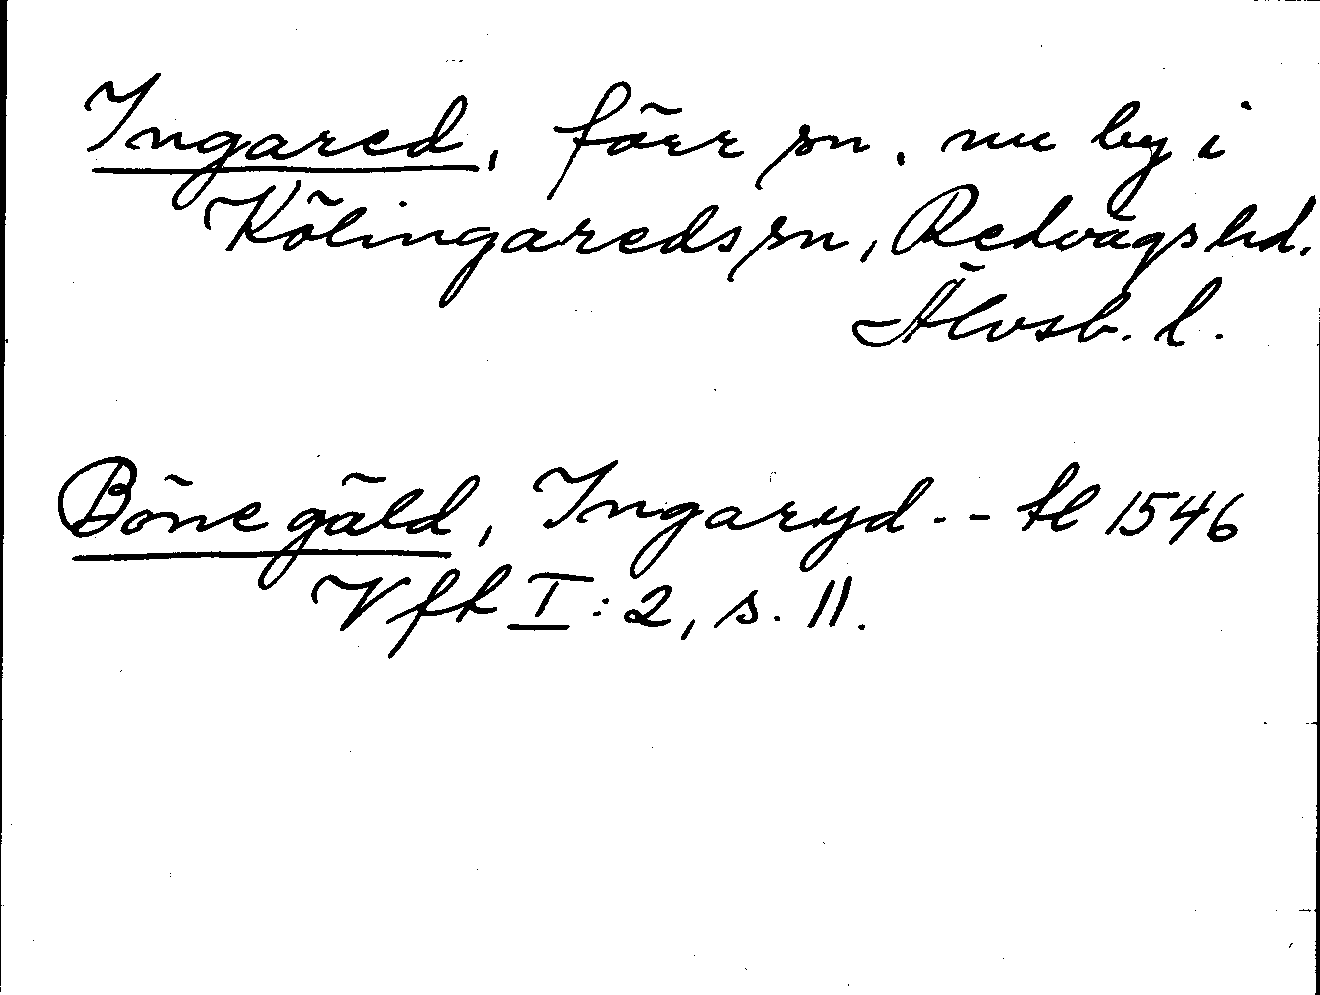 Ingared, förr sn, nu by i
Kölingareds sn, Redvägs hd.
Älvsb. l.
Bönegäld, Ingaryd -- tl 1546
Vfk I:2, s. 11.